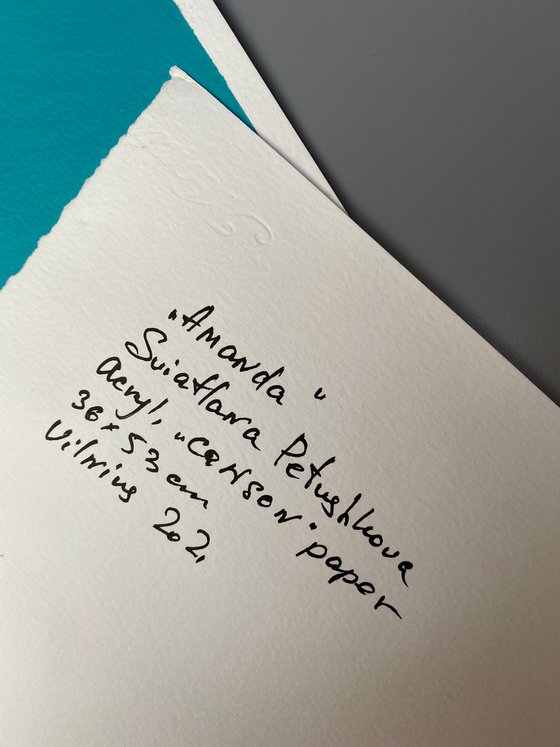 „Amanda"
Sviatlana Petushkova
acryl, „canson" paper
36x53 cm
Vilnius 202.